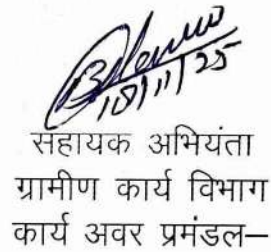 10/11/25
सहायक अभियंता
ग्रामीण कार्य विभाग
कार्य अवर प्रमंडल–